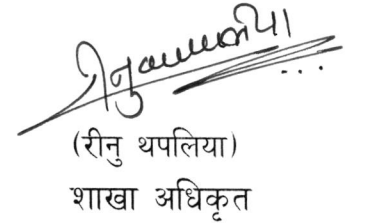 रीनु थपलिया
(रीनु थपलिया)
शाखा अधिकृत